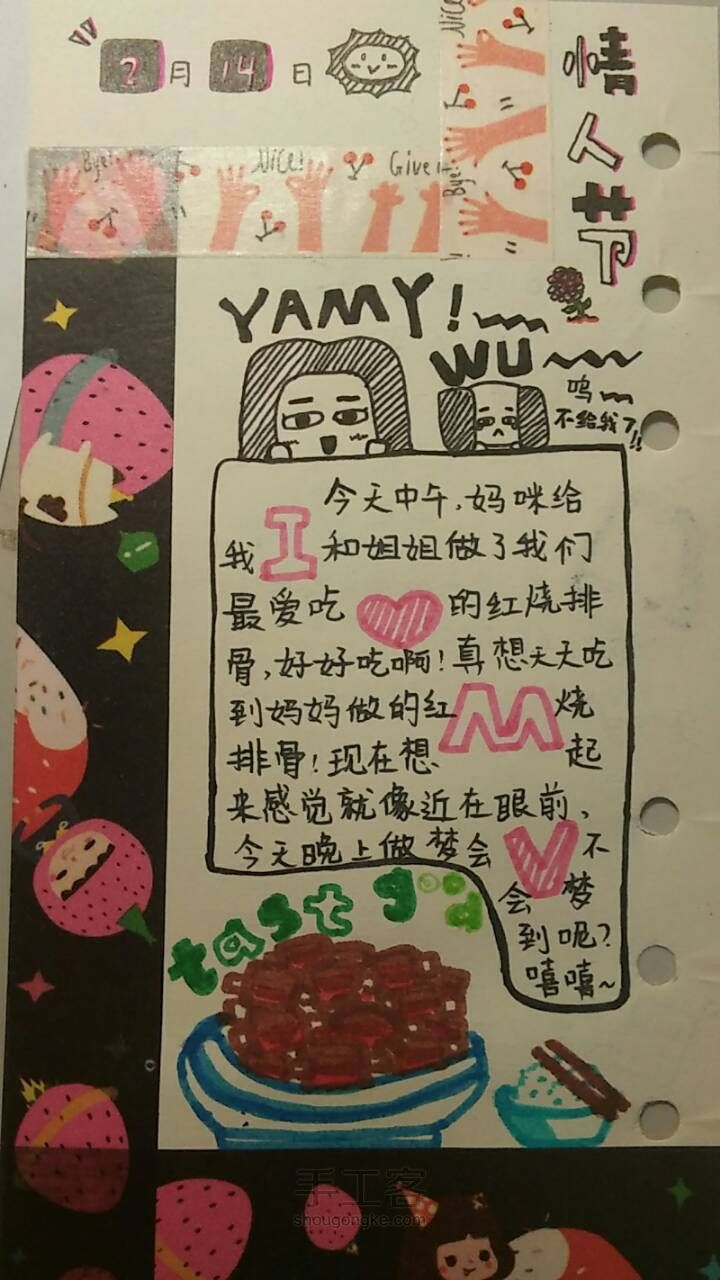 2月14日
情人节
Bye!
Nice!
Give it
Nice
Bye!
YAMY!
WU
呜
不给我了!!
今天中午,妈咪给
我I和姐姐做了我们
最爱吃的红烧排
骨,好好吃啊!真想天天吃
到妈妈做的红M烧
排骨!现在想起
来感觉就像近在眼前、
今天晚上做梦会V不
会梦
到呢?
嘻嘻~
tast good
手工客
shougongke.com